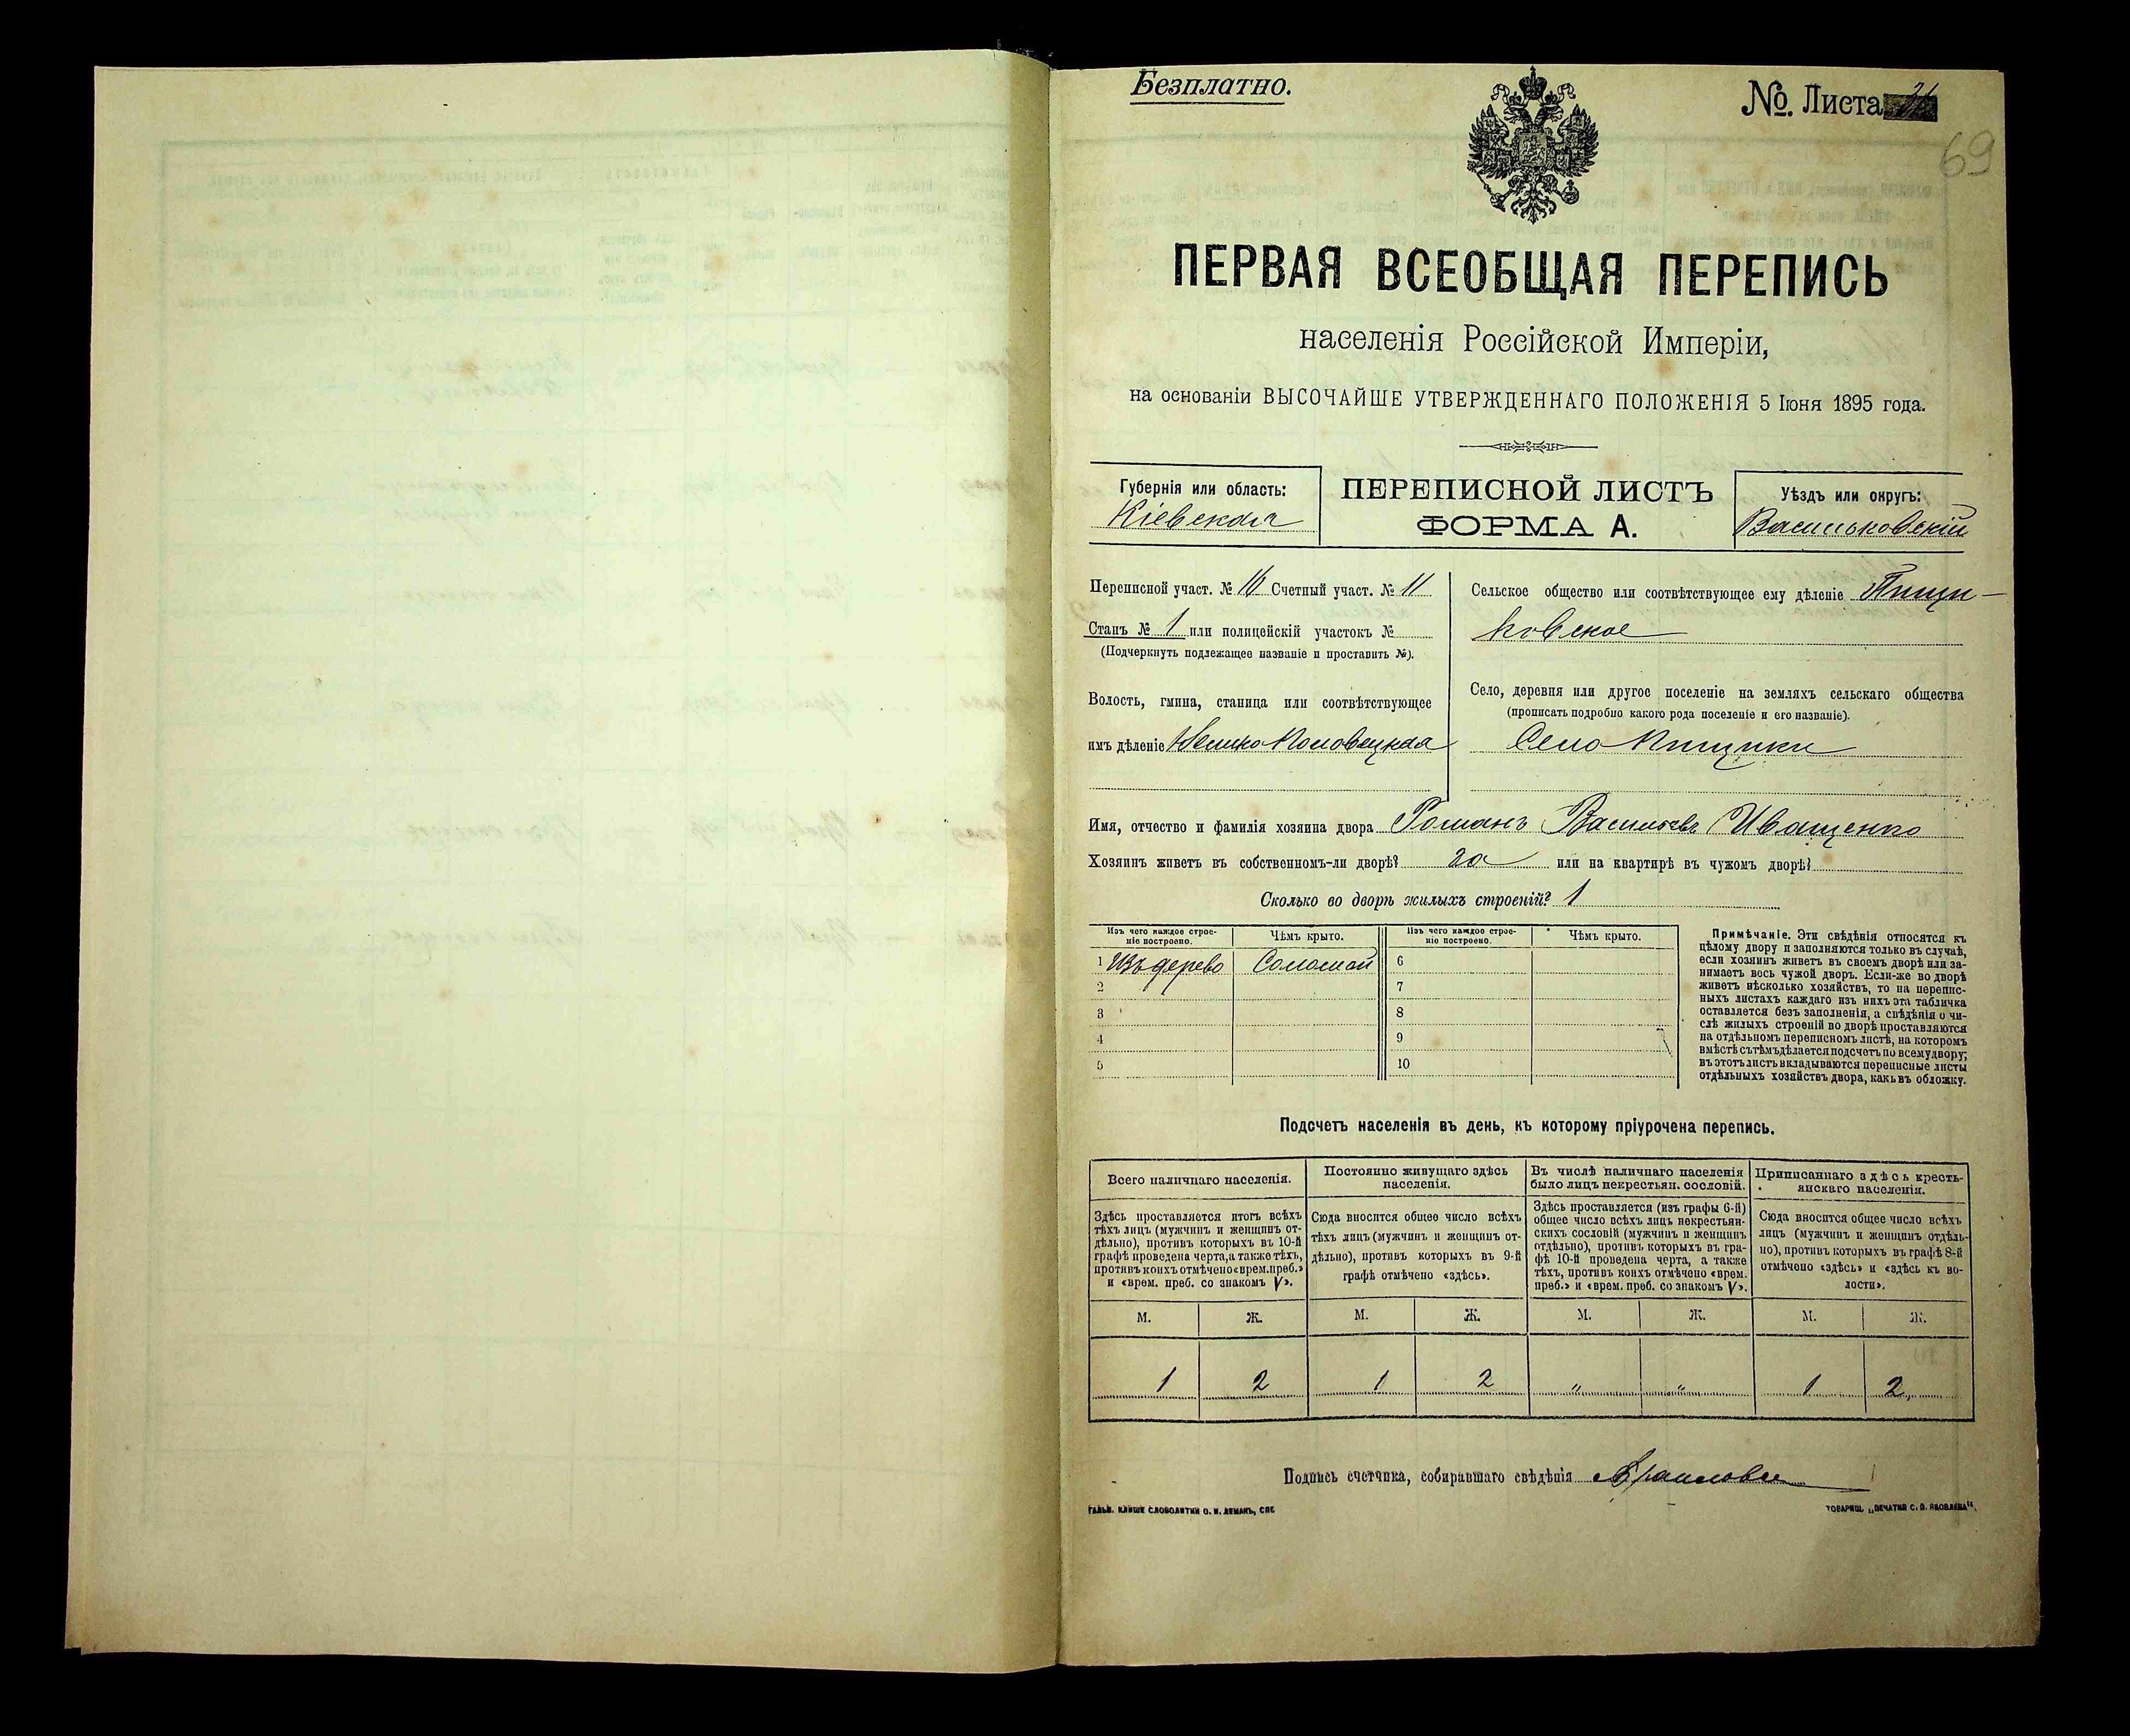 Безплатно.
№ Листа
69
ПЕРВАЯ ВСЕОБЩАЯ ПЕРЕПИСЬ
населенія Россійской Имперіи,
на основаніи ВЫСОЧАЙШЕ УТВЕРЖДЕННАГО ПОЛОЖЕНІЯ 5 Іюня 1895 года.
Губернія или область:
Кіевская
ПЕРЕПИСНОЙ ЛИСТЪ
ФОРМА А.
Уѣздъ или округъ:
Васильковскій
Переписной участ. № 16 Счетный участ. № 11
Станъ № 1 или полицейскій участокъ №
(Подчеркнуть подлежащее названіе и проставить №).
Волость, гмина, станица или соотвѣтствующее
имъ дѣленіе Велико Половецкая
Сельское общество или соотвѣтствующее ему дѣленіе Пищи-
ковское
Село, деревня или другое поселеніе на земляхъ сельскаго общества
(прописать подробно какого рода поселеніе и его названіе).
Село Пищики
Имя, отчество и фамилія хозяина двора Романъ Васильевъ Иващенко
Хозяинъ живетъ въ собственномъ-ли дворѣ? да или на квартирѣ въ чужомъ дворѣ?
Сколько во дворѣ жилыхъ строеній? 1
Изъ чего каждое строе-
ніе построено.
Чѣмъ крыто.
1 Изъ дерево Соломой
2
3
4
5
Изъ чего каждое строе-
ніе построено.
Чѣмъ крыто.
6
7
8
9
10
Примѣчаніе. Эти свѣдѣнія относятся къ
цѣлому двору и заполняются только въ случаѣ,
если хозяинъ живетъ въ своемъ дворѣ или за-
нимаетъ весь чужой дворъ. Если-же во дворѣ
живетъ нѣсколько хозяйствъ, то на перепис-
ныхъ листахъ каждаго изъ нихъ эта табличка
оставляется безъ заполненія, а свѣдѣнія о чи-
слѣ жилыхъ строеній во дворѣ проставляются
на отдѣльномъ переписномъ листѣ, на которомъ
вмѣстѣ съ тѣмъ дѣлается подсчетъ по всему двору;
въ этотъ листъ вкладываются переписные листы
отдѣльныхъ хозяйствъ двора, какъ въ обложку.
Подсчетъ населенія въ день, къ которому пріурочена перепись.
Всего наличнаго населенія.
Здѣсь проставляется итогъ всѣхъ
тѣхъ лицъ (мужчинъ и женщинъ от-
дѣльно), противъ которыхъ въ 10-й
графѣ проведена черта, а также тѣхъ,
противъ коихъ отмѣчено «врем. преб.»
и «врем. преб. со знакомъ V».
М. Ж.
1 2
Постоянно живущаго здѣсь
населенія.
Сюда вносится общее число всѣхъ
тѣхъ лицъ (мужчинъ и женщинъ от-
дѣльно), противъ которыхъ въ 9-й
графѣ отмѣчено «здѣсь».
М. Ж.
1 2
Въ числѣ наличнаго населенія
было лицъ некрестьян. сословій.
Здѣсь проставляется (изъ графы 6-й)
общее число всѣхъ лицъ некрестьян-
скихъ сословій (мужчинъ и женщинъ
отдѣльно), противъ которыхъ въ гра-
фѣ 10-й проведена черта, а также
тѣхъ, противъ коихъ отмѣчено «врем.
преб.» и «врем. преб. со знакомъ V».
М. Ж.
" "
Приписаннаго здѣсь кресть-
янскаго населенія.
Сюда вносится общее число всѣхъ
лицъ (мужчинъ и женщинъ отдѣль-
но), противъ которыхъ въ графѣ 8-й
отмѣчено «здѣсь» и «здѣсь къ во-
лости».
М. Ж.
1 2
Подпись счетчика, собиравшаго свѣдѣнія
ГАЛЬВ. КЛИШЕ СЛОВОЛИТНИ О. И. ЛЕМАНЪ, СПБ.
ТОВАРИЩ. „ПЕЧАТНЯ С. П. ЯКОВЛЕВА".